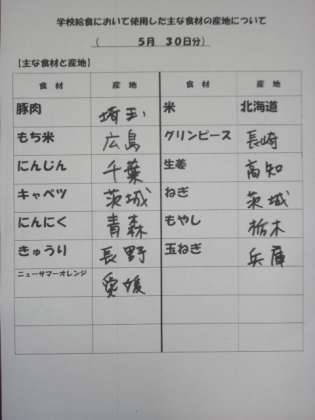 学校給食において使用した主な食材の産地について
（　　5月　30日分）
【主な食材と産地】
食材　産地　食材　産地
豚肉　埼玉　米　北海道
もち米　広島　グリンピース　長崎
にんじん　千葉　生姜　高知
キャベツ　茨城　ねぎ　茨城
にんにく　青森　もやし　栃木
きゅうり　長野　玉ねぎ　兵庫
ニューサマーオレンジ　愛媛